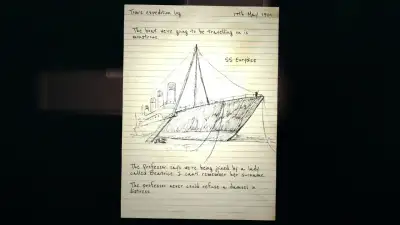 Tom's expedition log 17th May 19
The boat we're going to be travelling on is
monstrous
SS Eurydice
The professor says we're being joined by a lady
called Beatrice. I can't remember her surname.
The professor never could refuse a damsel in
distress